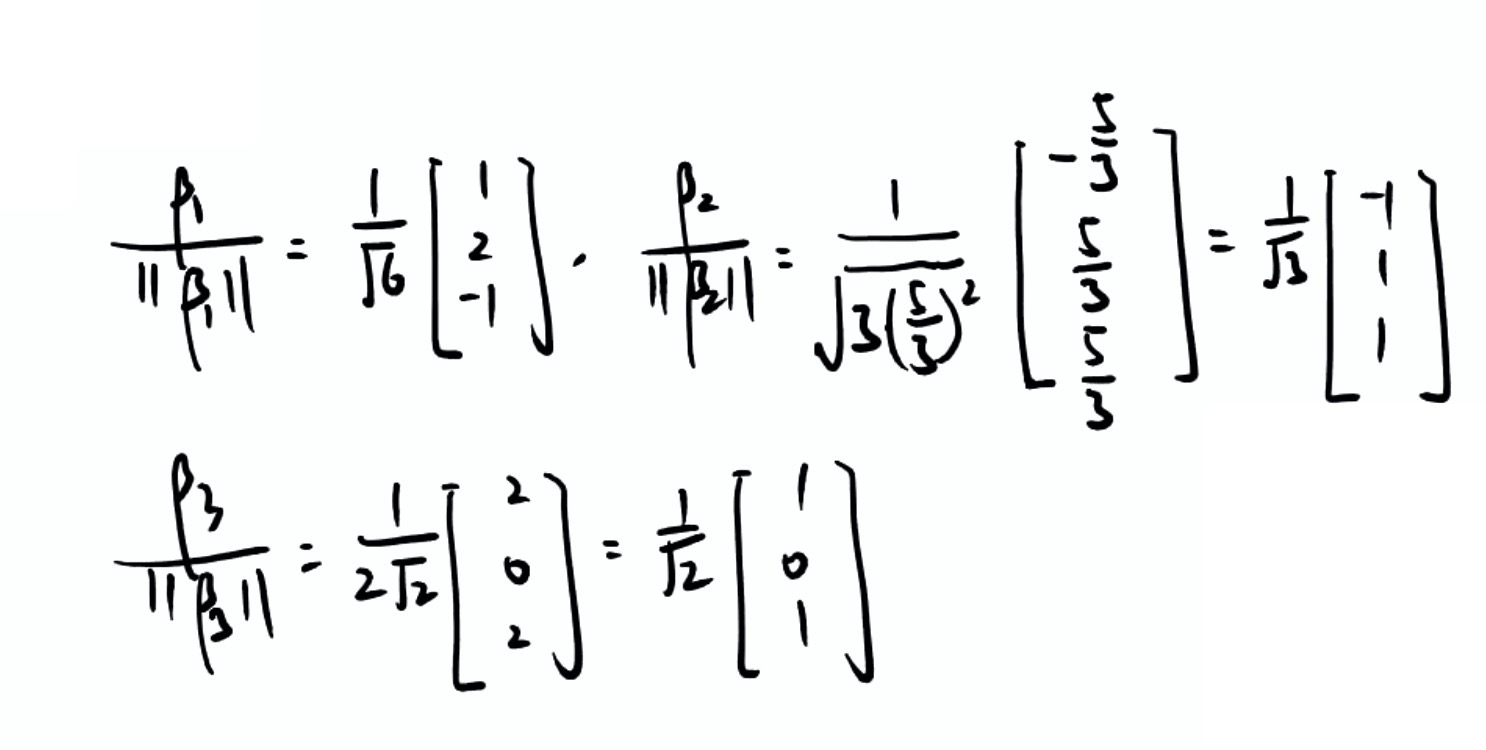 $\frac{\beta_1}{\|\beta_1\|} = \frac{1}{\sqrt{6}} \begin{bmatrix} 1 \\ 2 \\ -1 \end{bmatrix} . \frac{\beta_2}{\|\beta_2\|} = \frac{1}{\sqrt{3(\frac{5}{3})^2}} \begin{bmatrix} -\frac{5}{3} \\ \frac{5}{3} \\ \frac{5}{3} \end{bmatrix} = \frac{1}{\sqrt{3}} \begin{bmatrix} -1 \\ 1 \\ 1 \end{bmatrix}$
$\frac{\beta_3}{\|\beta_3\|} = \frac{1}{2\sqrt{2}} \begin{bmatrix} 2 \\ 0 \\ 2 \end{bmatrix} = \frac{1}{\sqrt{2}} \begin{bmatrix} 1 \\ 0 \\ 1 \end{bmatrix}$